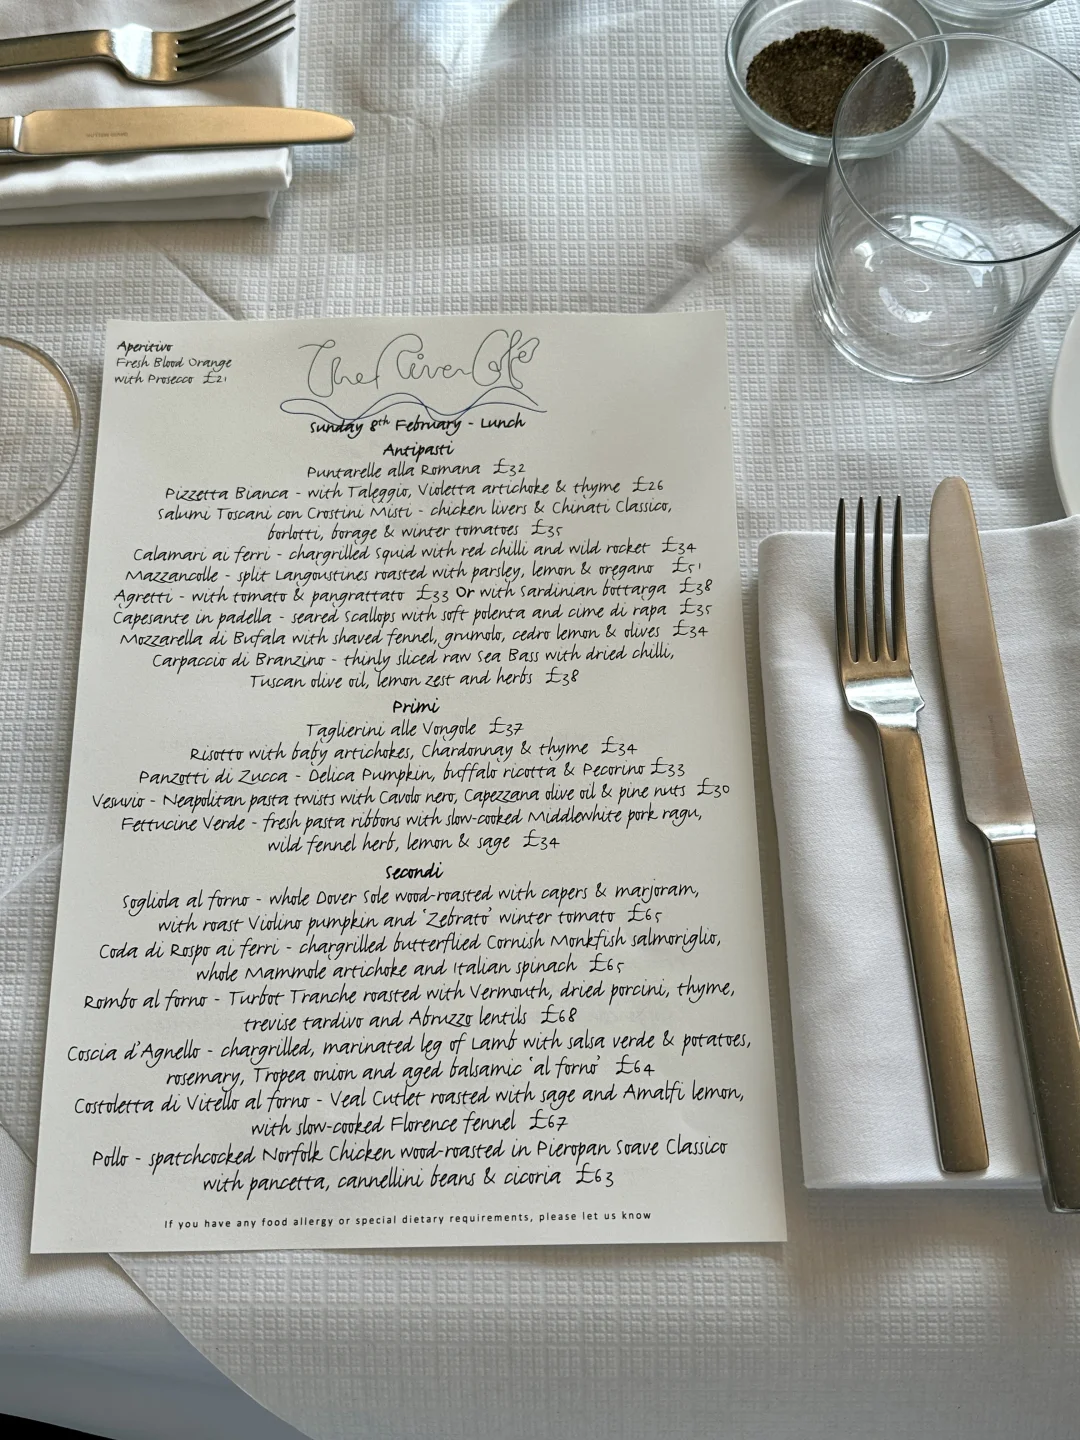 Aperitivo
Fresh Blood Orange
with Prosecco £21
The River Cafe
Sunday 8th February - Lunch
Antipasti
Puntarelle alla Romana £32
Pizzetta Bianca - with Taleggio, Violetta artichoke & thyme £26
Salumi Toscani con Crostini Misti - chicken livers & Chinati Classico,
borlotti, borage & winter tomatoes £35
Calamari ai ferri - chargrilled squid with red chilli and wild rocket £34
Mazzancolle - split Langoustines roasted with parsley, lemon & oregano £51
Agretti - with tomato & pangrattato £33 Or with Sardinian bottarga £38
Capesante in padella - seared Scallops with soft polenta and cime di rapa £35
Mozzarella di Bufala with shaved fennel, grumolo, cedro lemon & olives £34
Carpaccio di Branzino - thinly sliced raw Sea Bass with dried chilli,
Tuscan olive oil, lemon zest and herbs £38
Primi
Taglierini alle Vongole £37
Risotto with baby artichokes, Chardonnay & thyme £34
Panzotti di Zucca - Delica Pumpkin, buffalo ricotta & Pecorino £33
Vesuvio - Neapolitan pasta twists with Cavolo nero, Capezzana olive oil & pine nuts £30
Fettucine Verde - fresh pasta ribbons with slow-cooked Middlewhite pork ragu,
wild fennel herb, lemon & sage £34
Secondi
Sogliola al forno - whole Dover Sole wood-roasted with capers & marjoram,
with roast Violino pumpkin and 'Zebrato' winter tomato £65
Coda di Rospo ai ferri - chargrilled butterflied Cornish Monkfish salmoriglio,
whole Mammole artichoke and Italian spinach £65
Rombo al forno - Turbot Tranche roasted with Vermouth, dried porcini, thyme,
trevise tardivo and Abruzzo lentils £68
Coscia d'Agnello - chargrilled, marinated leg of Lamb with salsa verde & potatoes,
rosemary, Tropea onion and aged balsamic 'al forno' £64
Costoletta di Vitello al forno - Veal Cutlet roasted with sage and Amalfi lemon,
with slow-cooked Florence fennel £67
Pollo - spatchcocked Norfolk Chicken wood-roasted in Pieropan Soave Classico
with pancetta, cannellini beans & cicoria £63
If you have any food allergy or special dietary requirements, please let us know